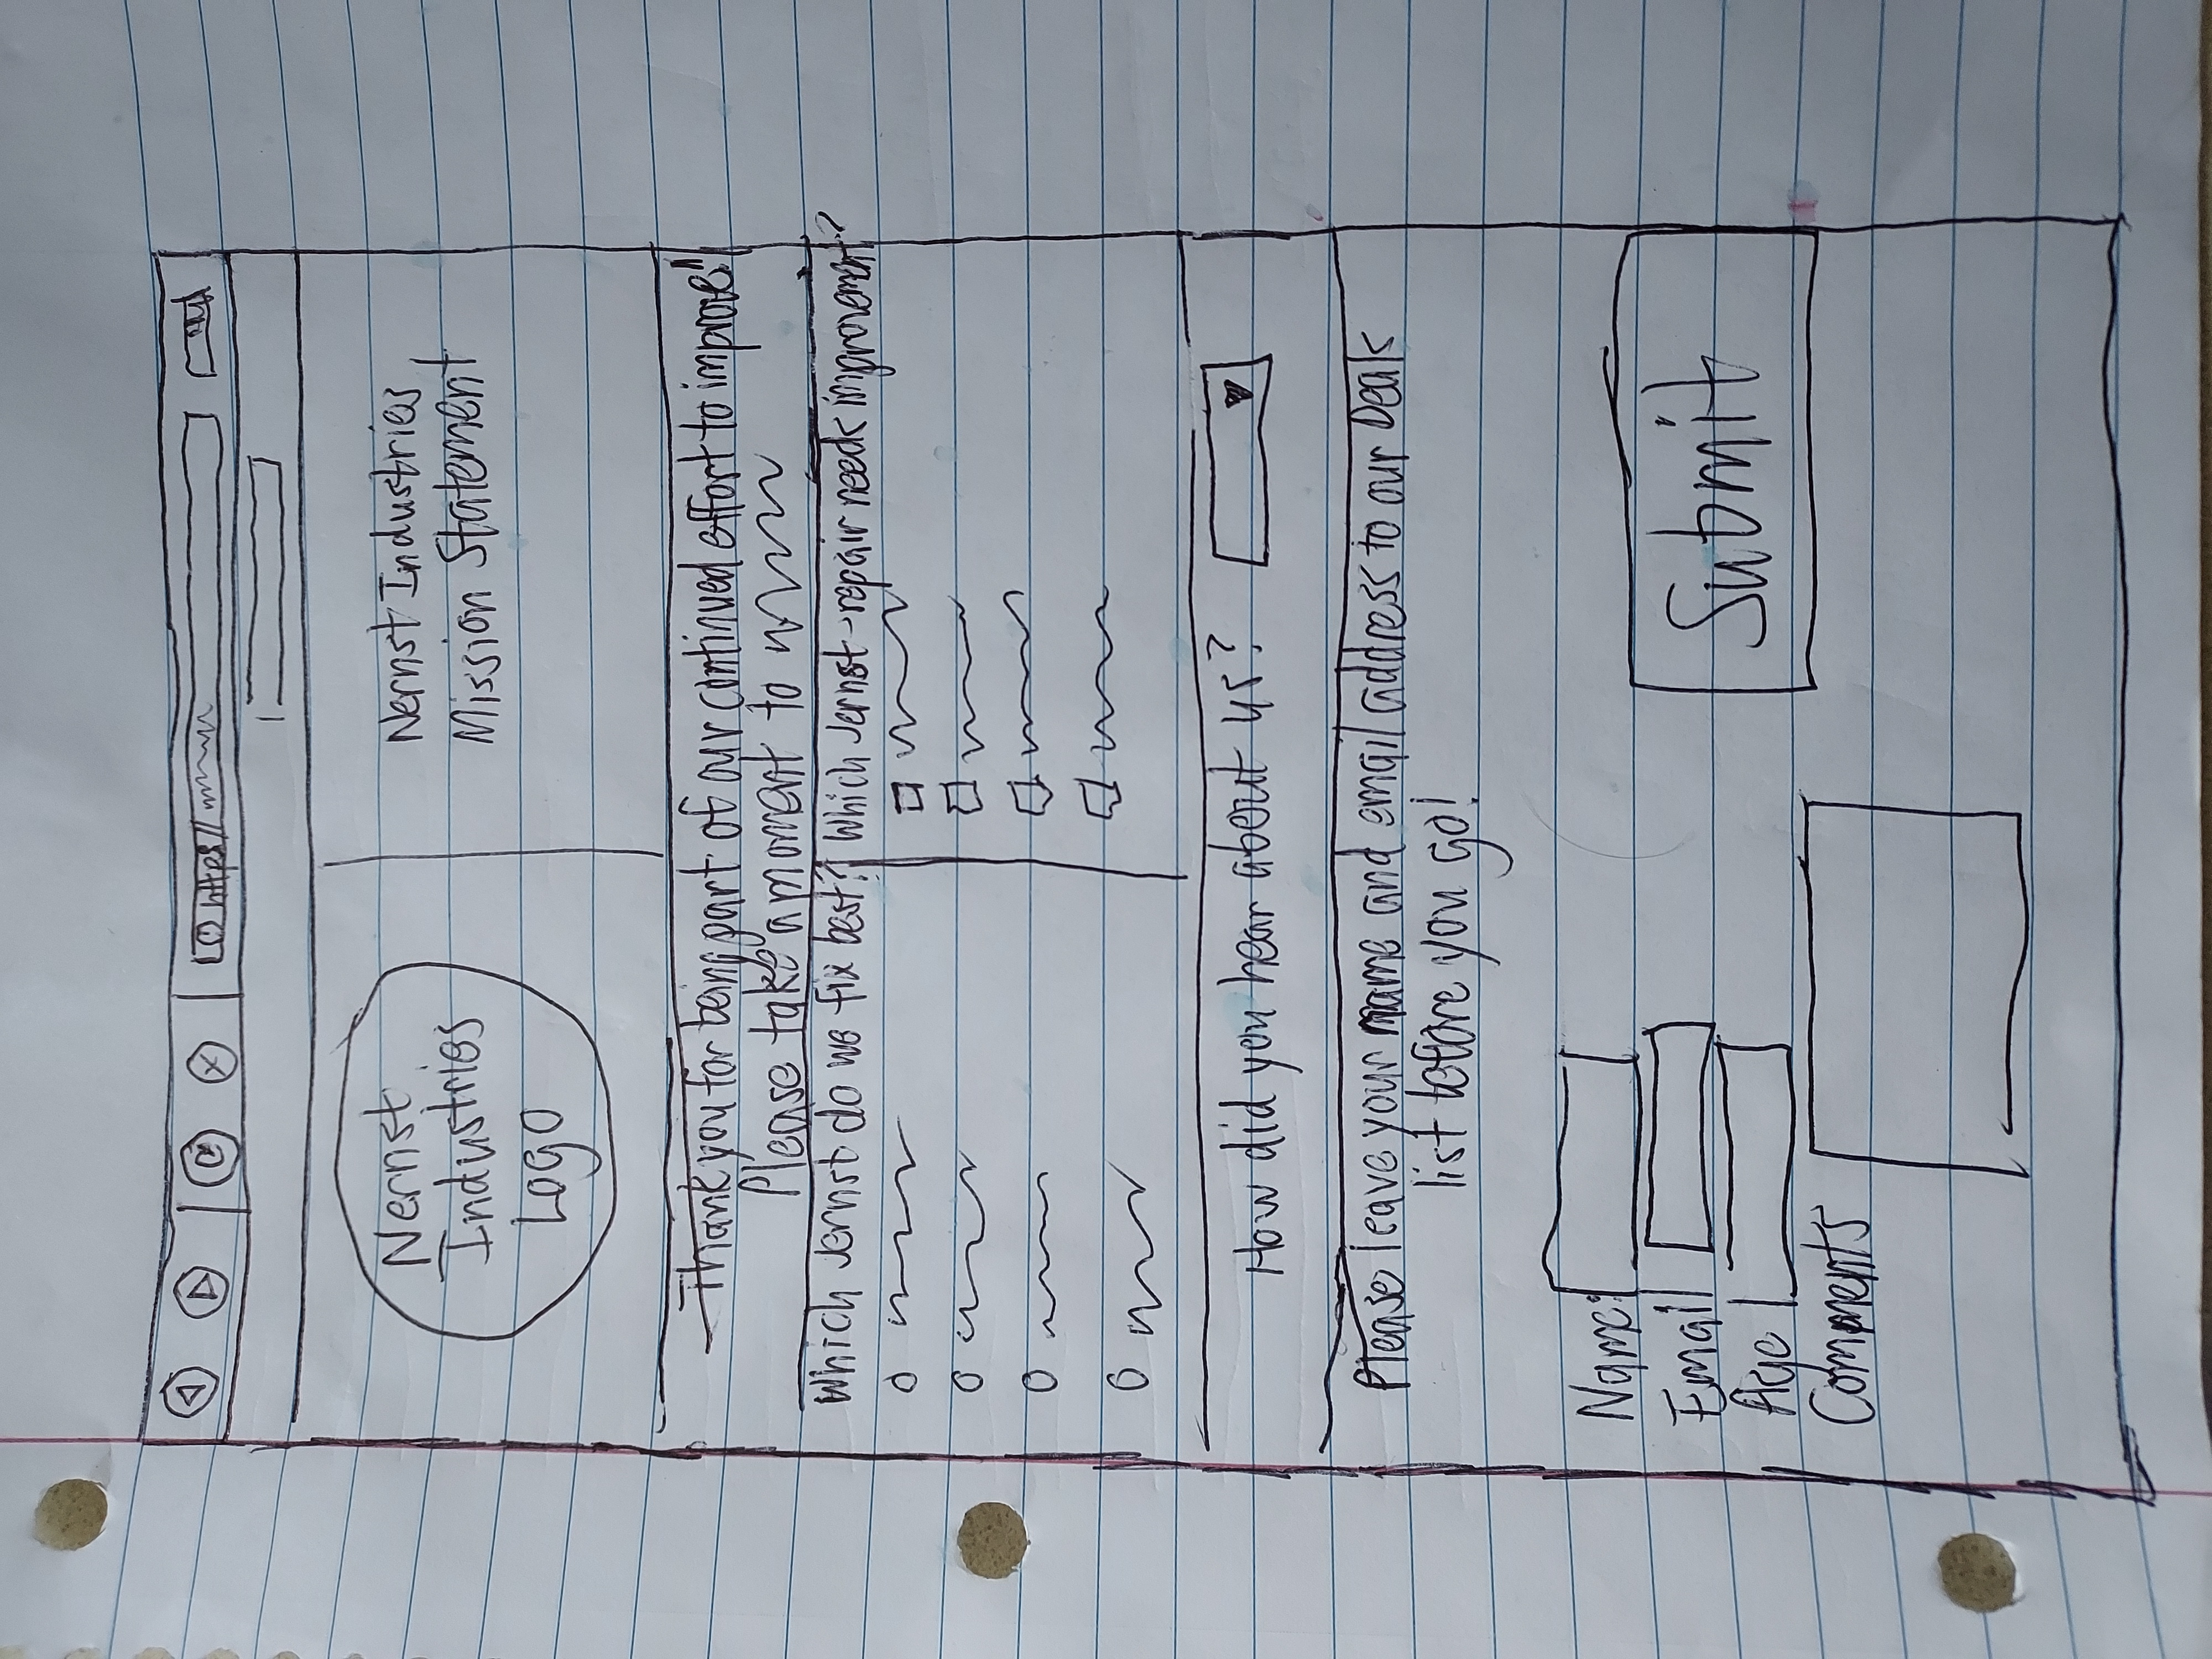 https//
Nernst
Industries
Logo
Nernst Industries
Mission Statement
Thank you for being part of our continued effort to improve!
Please take a moment to
Which Jernst do we fix best?
Which Jernst-repair needs improvement?
How did you hear about us?
Please leave your name and email address to our Deals
list before you go!
Name:
Email
Age
Comments
Submit